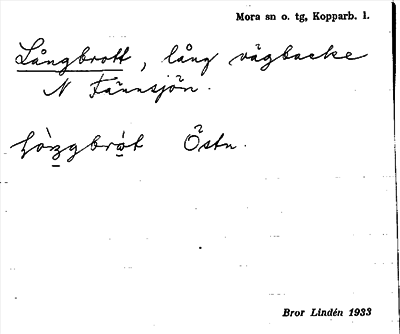 Mora sn o. tg, Kopparb. l.
Långbrott, lång vägbacke
N Fännsjön.
Östn.
Bror Lindén 1933